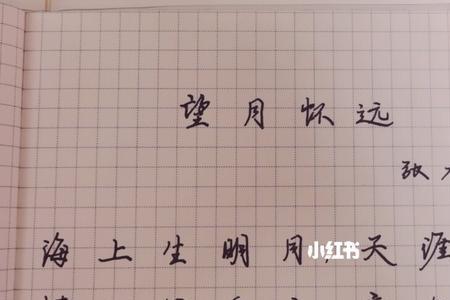 望月怀远
张
海上生明月,天涯
小红书